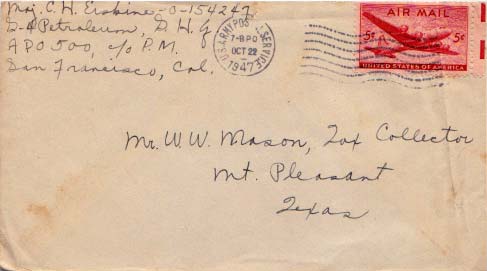 Maj. C. H. Erskine - O-154247
G-4 Petroleum, G. H. Q
APO 500, c/o P.M.
San Francisco, Cal.
U.S. ARMY POSTAL SERVICE
7-8 PM
OCT 22
1947
AIR MAIL
5¢ 5¢
UNITED STATES OF AMERICA
Mr. W.W. Mason, Tax Collector
Mt. Pleasant
Texas